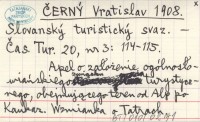 ČERNÝ Vratislav 1908.
Slovanský turistický svaz. —
Čas. Tur. 20, nr 3: 114-115.
Apel o założenie ogólnosło-
wiańskiego turysty-
cznego, obejmującego teren od Alp po
Kaukaz. Wzmianka o Tatrach.